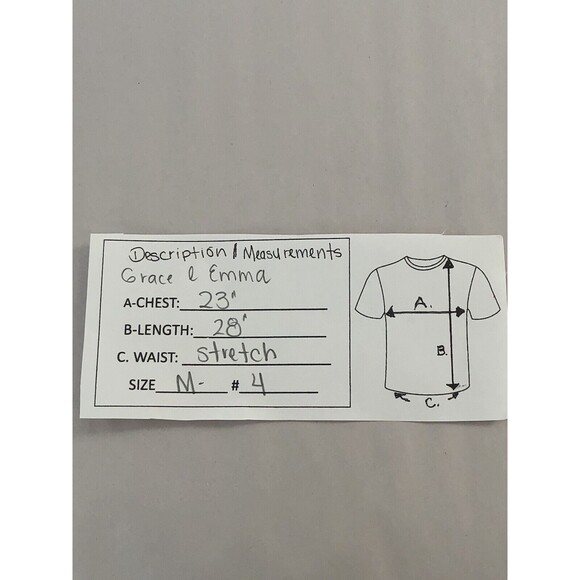 Description / Measurements
Grace & Emma
A-CHEST: 23"
B-LENGTH: 28"
C. WAIST: Stretch
SIZE M- # 4
A.
B.
C.